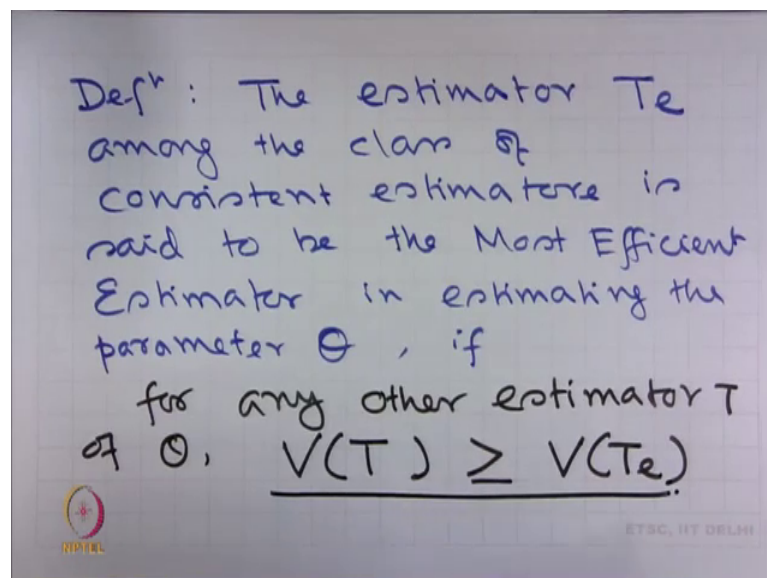 Defn : The estimator Te
among the class of
consistent estimators is
said to be the Most Efficient
Estimator in estimating the
parameter θ , if
for any other estimator T
of θ, V(T) ≥ V(Te)
NPTEL
ETSC, IIT DELHI